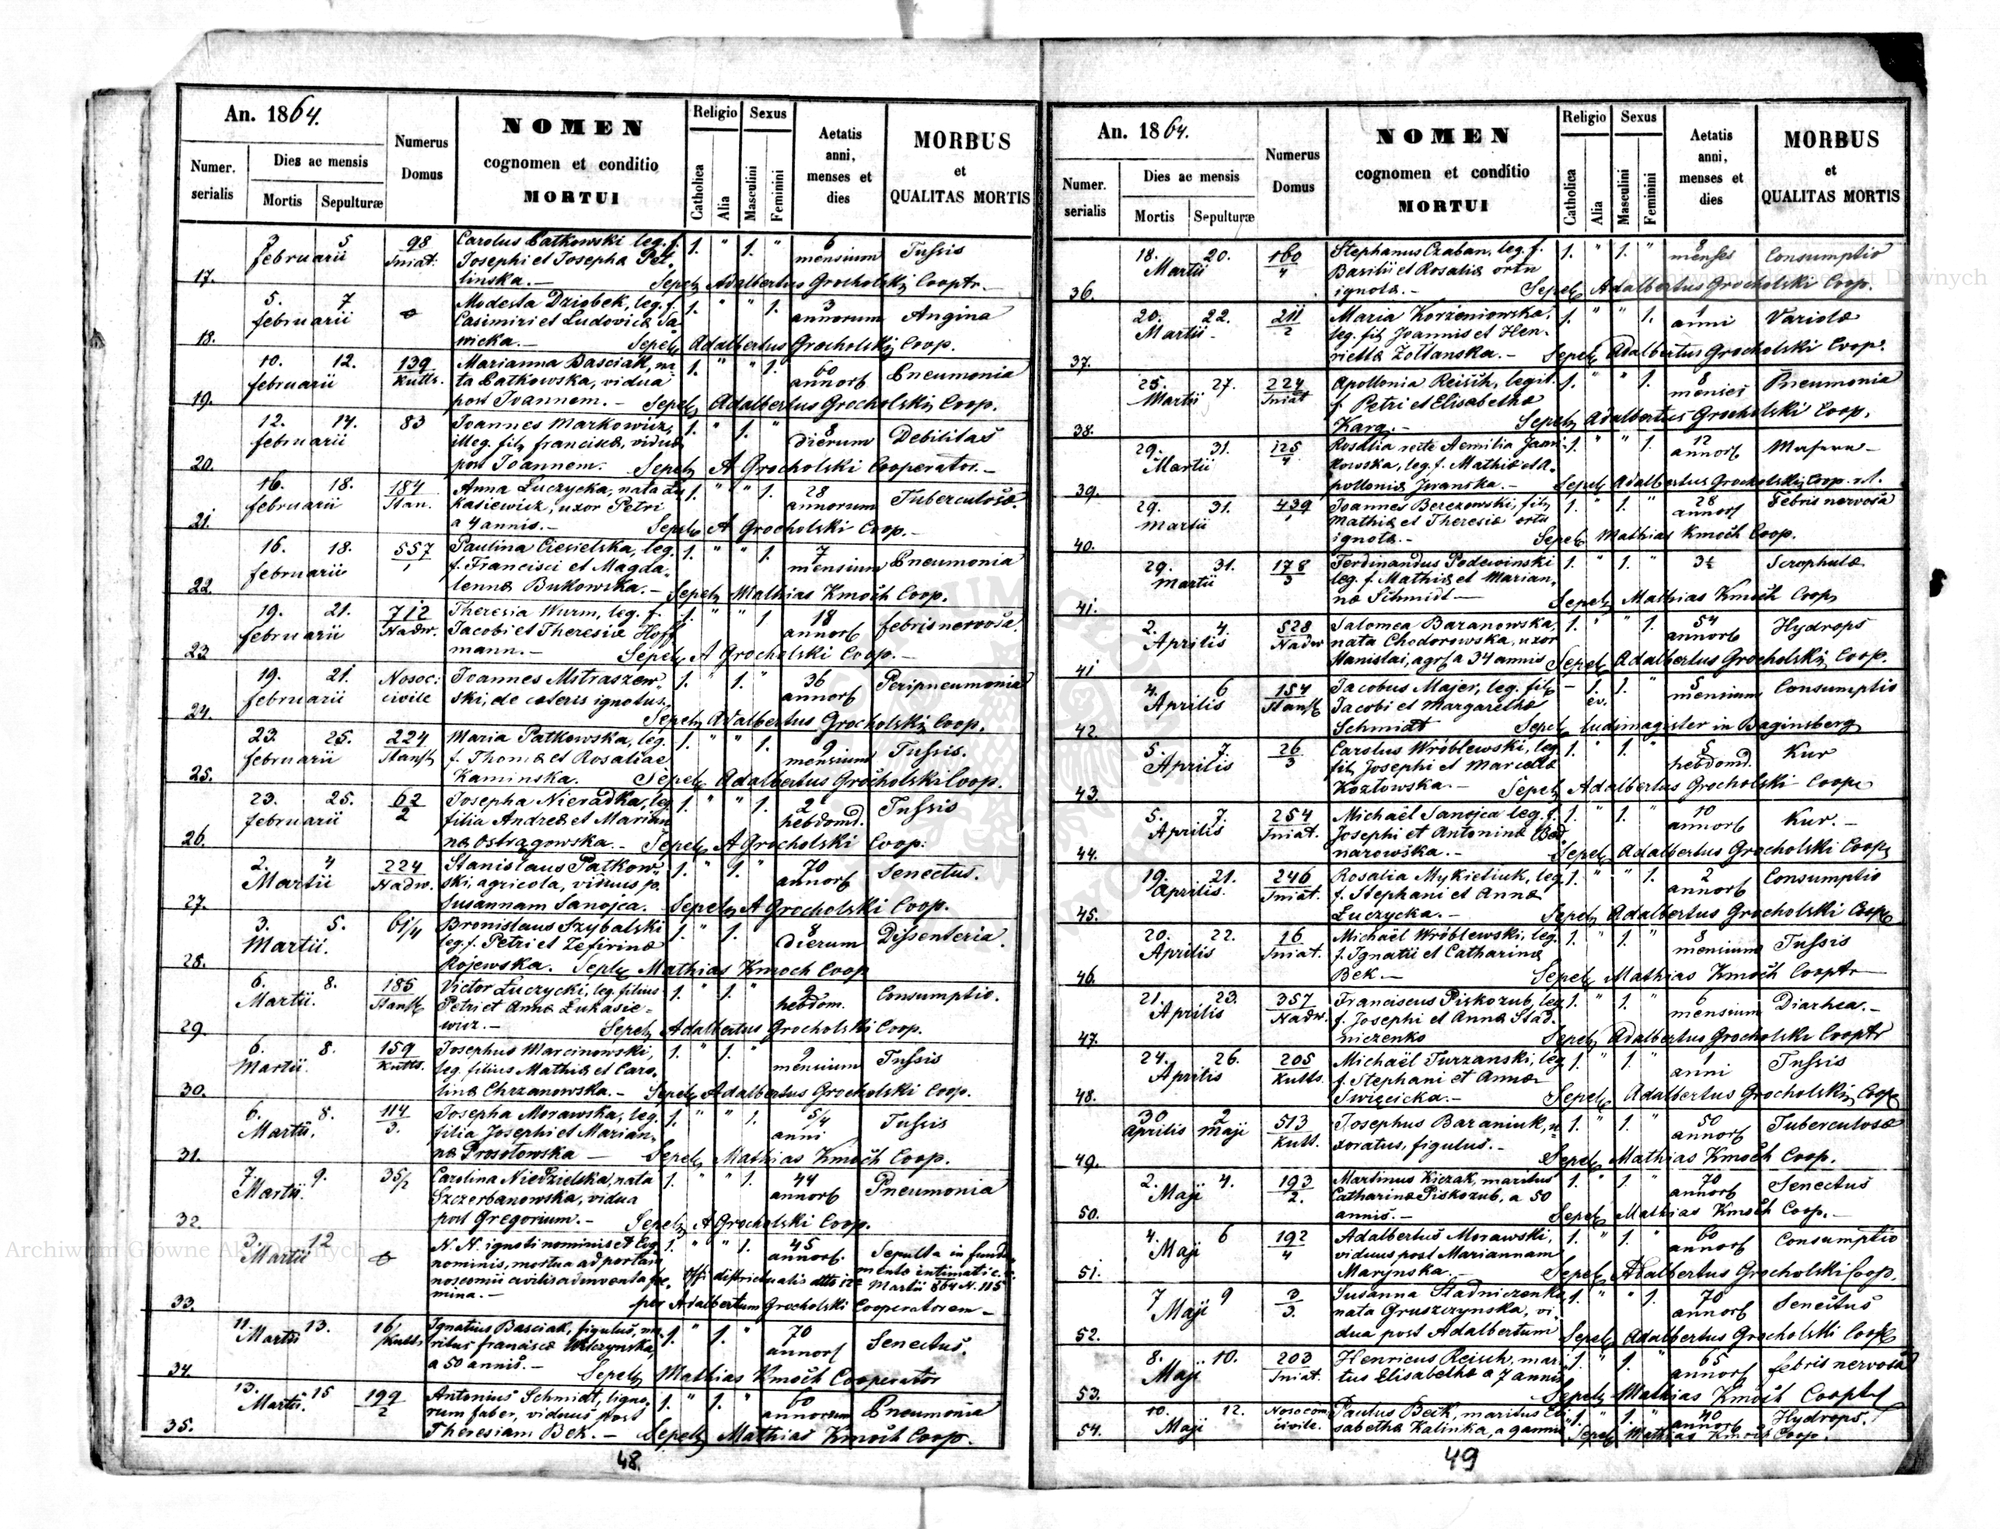 An. 1864.
Numer. serialis
Dies ac mensis
Mortis
Sepulturæ
Numerus Domus
NOMEN
cognomen et conditio
MORTUI
Religio
Catholica
Alia
Sexus
Masculini
Feminini
Aetatis anni, menses et dies
MORBUS
et
QUALITAS MORTIS
17. 3 februarii 5 98 Carolus Patkowski leg. f. 1. " 1. " 6 mensium Tussis
Josephi et Josepha Pet-
linska. – Sepel. Adalbertus Grocholski Cooptr. –
18. 5. februarii 7 Modesta Dziobek, leg. f. 1. " " 1. 3 annorum Angina
Casimiri et Ludovicæ Sa-
wicka. – Sepel. Adalbertus Grocholski Coop.
19. 10. februarii 12. 139 Kutts. Marianna Basciak, na- 1. " " 1. 60 annor Pneumonia
ta Patkowska, vidua
post Joannem. – Sepel. Adalbertus Grocholski Coop.
20. 12. februarii 14. 83 Joannes Markowicz, 1. " 1. " 8 dierum Debilitas
illeg. fil. franciscæ, viduæ
post Joannem. Sepel. A Grocholski Cooperator. –
21. 16. februarii 18. 184 Stan. Anna Łuczycka, nata Łu 1. " " 1. 28 annorum Tuberculosæ.
kasiewicz, uxor Petri
a 4 annis. – Sepel. A Grocholski Coop. –
22. 16. februarii 18. 557 Paulina Ciesielska, leg. 1. " " 1. 7 mensium Pneumonia
f. Francisci et Magda-
lennæ Bukowska. – Sepel. Mathias Kmoch Coop.
23. 19. februarii 21. 712 Nadw. Theresia Wurm, leg. f. 1. " " 1 18 annor febris nervosa.
Jacobi et Theresiæ Hoff
mann. – Sepel. A Grocholski Coop. –
24. 19. februarii 21. Nosoc: civile Joannes Mstraszew- 1. " 1. " 36 annor Peripneumonia
ski, de cæteris ignotus,
Sepel. Adalbertus Grocholski Coop.
25. 23. februarii 25. 224 Stansł Maria Patkowska, leg. 1. " " 1. 9 mensium Tussis.
f. Thomæ et Rosaliae
Kaminska. Sepel. Adalbertus Grocholski Coop.
26. 23. februarii 25. 62/2 Josepha Nieradka, leg 1. " " 1. 2 hebdomd. Tussis
filia Andreæ et Marian
næ Ostrągowska. – Sepel. A Grocholski Coop:
27. 2. Martii 4 224 Nadw. Stanislaus Patkow- 1. " 1. " 70 annor Senectus.
ski, agricola, viduus p.
Susannam Sanojca. Sepel. A Grocholski Coop.
28. 3. Martii. 5. 61/4 Bronislaus Szybalski 1. " 1. " 8 dierum Dissenteria.
leg. f. Petri et Zefirinæ
Rojewska. Sepel. Mathias Kmoch Coop
29. 6. Martii. 8. 185 Stansł Victor Łuczycki, leg. filius 1. " 1. " 2 hebdom. Consumptio.
Petri et Annæ Łukasie-
wicz. – Sepel. Adalbertus Grocholski Coop.
30. 6. Martii. 8. 159 Kutts. Josephus Marcinowski, 1. " 1. " 9 mensium Tussis
leg. filius Mathiæ et Caro-
linæ Chrzanowska. – Sepel. Adalbertus Grocholski Coop.
31. 6. Martii. 8. 114/3. Josepha Morawska, leg. 1. " " 1. 5/4 anni Tussis
filia Josephi et Marian-
næ Prosołowska – Sepel. Mathias Kmoch Coop.
32. 7 Martii. 9. 35/2 Carolina Niedzielska, nata 1. " " 1. 44 annor Pneumonia
Szczerbanowska, vidua
post Gregorium. – Sepel. A Grocholski Coop.
33. 3. Martii 12 N. N. ignoti nominis et Cog 1. " " 1. 45 annor. Sepulta in funda
nominis, mortua ad portam mento intimati c. r.
noscomii civilis adinventa fe- Offi districtualis Martii 864 N. 115
mina. – per Adalbertum Grocholski Cooperatorem –
34. 11. Martii 13. 16/ Kutts Ignatius Basciak, figulus, ma- 1. " 1. " 70 annor Senectus.
ritus franciscæ Wilczynska,
a 50 annis. – Sepel. Mathias Kmoch Cooperator
35. 13. Martii. 15 199/2 Antonius Schmidt, ligno- 1. " 1. " 60 annorum Pneumonia
rum faber, viduus post
Theresiam Bek. – Sepel. Mathias Kmoch Coop.
48.
An. 1864.
Numer. serialis
Dies ac mensis
Mortis
Sepulturæ
Numerus Domus
NOMEN
cognomen et conditio
MORTUI
Religio
Catholica
Alia
Sexus
Masculini
Feminini
Aetatis anni, menses et dies
MORBUS
et
QUALITAS MORTIS
36. 18. Martii 20. 160/4 Stephanus Czaban, leg. f. 1. " 1. " 8 menses Consumptio
Basilii et Rosaliæ ortu
ignotæ. – Sepel. Adalbertus Grocholski Coop.
37. 20. Martii 22. 211/2 Maria Korzeniowska, 1. " " 1. 1 anni Variolæ
leg. fil. Joannis et Hen-
riettæ Żołtanska. – Sepel. Adalbertus Grocholski Coop.
38. 25. Martii 27. 224 Tniat Apollonia Reisch, legit. 1. " " 1. 8 menses Pneumonia
f. Petri et Elisabethæ
Karg. – Sepel. Adalbertus Grocholski Coop.
39. 29. Martii 31. 125/4 Rosalia recte Aemilia Jan- 1. " " 1. 12 annor
kowska, leg. f. Mathiæ et A-
polloniæ Jwanska. – Sepel. Adalbertus Grocholski Coop.
40. 29. Martii 31. 439 Joannes Berezowski, fil. 1. " 1. " 28 annor Febris nervosa
Mathiæ et Theresiæ ortu
ignotæ. – Sepel. Mathias Kmoch Coop.
41. 29. Martii 31. 178/3 Ferdinandus Podewinski 1. " 1. " 3½ Scrophulæ
leg. f. Mathiæ et Marian-
næ Schmidt – Sepel. Mathias Kmoch Coop
41 2. Aprilis 4. 528 Nadw Salomea Baranowska, 1. " " 1. 54 annor Hydrops
nata Chodorowska, uxor
Stanislai, agr. a 34 annis Sepel. Adalbertus Grocholski Coop.
42. 4. Aprilis 6 154 Stansł Jacobus Majer, leg. fil. – 1. ev. 1. " 5 mensium Consumptio
Jacobi et Margarethæ
Schmidt Sepel. ludimagister in Baginsberg
43. 5. Aprilis 7. 26/3 Carolus Wróblewski, leg. 1. " 1. " 5 hebdomd. Kur
fil. Josephi et Marcellæ
Kozlowska. – Sepel. Adalbertus Grocholski Coop
44. 5. Aprilis 7. 254 Tniat. Michaël Sanojca leg. f. 1. " 1. " 10 annor Kur. –
Josephi et Antoninæ Bed
narowska. – Sepel. Adalbertus Grocholski Coop
45. 19. Aprilis. 21. 246 Tniat. Rosalia Mykietiuk, leg 1. " " 1. 2 annor Consumptio
f. Stephani et Annæ
Łuczycka. – Sepel. Adalbertus Grocholski Coop
46. 20. Aprilis 22. 16 Tniat. Michaël Wróblewski, leg. 1. " 1. " 8 mensium Tussis
f. Ignatii et Catharinæ
Bek. – Sepel. Mathias Kmoch Cooptr –
47. 21. Aprilis 23. 357 Nadw. Franciscus Piskozub, leg 1. " 1. " 6 mensium Diarhea. –
f. Josephi et Annæ Stad-
niczenko Sepel. Adalbertus Grocholski Cooptr
48. 24. Aprilis 26. 205 Kutts. Michaël Turzanski, leg 1. " 1. " 1 anni Tussis
f. Stephani et Annæ
Swięcicka. – Sepel. Adalbertus Grocholski Coop
49. 30 Aprilis 2 Maji 513 Kutt. Josephus Baraniuk, u- 1. " 1. " 50 annor Tuberculosæ
xoratus, figulus. –
Sepel. Mathias Kmoch Coop.
50. 2. Maji 4. 193/2. Martinus Kiczak, maritus 1. " 1. " 70 annor Senectus
Catharinæ Piskozub, a 50
annis. – Sepel. Mathias Kmoch Coop. –
51. 4. Maji 6 192/4 Adalbertus Morawski, 1. " 1. " 60 annor Consumptio
viduus post Mariannam
Marynska. – Sepel. Adalbertus Grocholski Coop.
52. 7 Maji 9 3/3. Susanna Stadniczenko, 1. " " 1. 70 annor Senectus
nata Gruszczynska, vi-
dua post Adalbertum Sepel. Adalbertus Grocholski Coop
53. 8. Maji 10. 203 Tniat. Henricus Reisch, mari- 1. " 1. " 65 annor febris nervosa
tus Elisabethæ a 7 annis
Sepel. Mathias Kmoch Cooptr
54. 10. Maji 12. Nosocom civile. Paulus Beck, maritus Eli- 1. " 1. " 40 annor Hydrops.
sabethæ Kalinka, a 9 annis Sepel. Mathias Kmoch Coop.
49
Archiwum Główne Akt Dawnych
Archiwum Główne Akt Dawnych